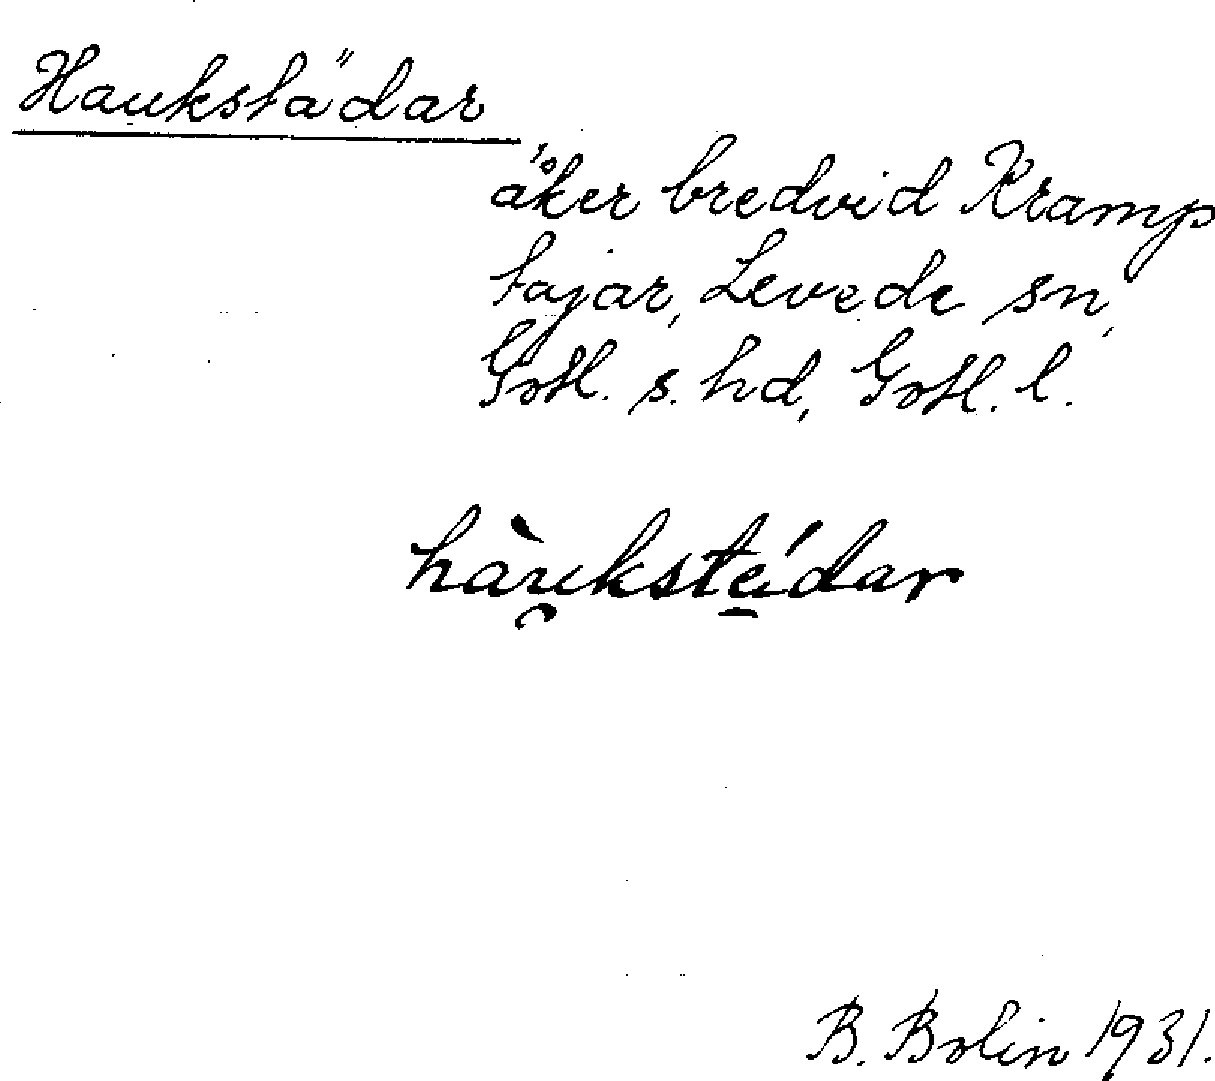 Haukstädar
åker bredvid Kramp
tajar, Levede sn,
Gotl. s. hd, Gotl. l.
hàu̯ksté̠dar
B. Bolin 1931.